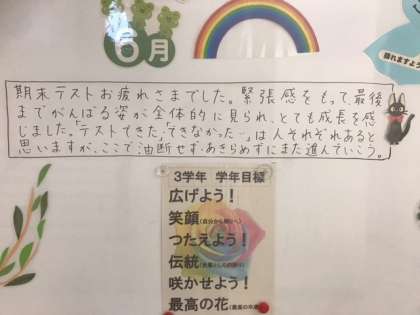 6月
踊れますよう
期末テストお疲れさまでした。緊張感をもって、最後
までがんばる姿が全体的に見られ、とても成長を感
じました。「テストできた」「できなかった…」は人それぞれあると
思いますが、ここで油断せず、あきらめずにまた進んでいこう。
3学年 学年目標
広げよう！
笑顔
つたえよう！
伝統
咲かせよう！
最高の花